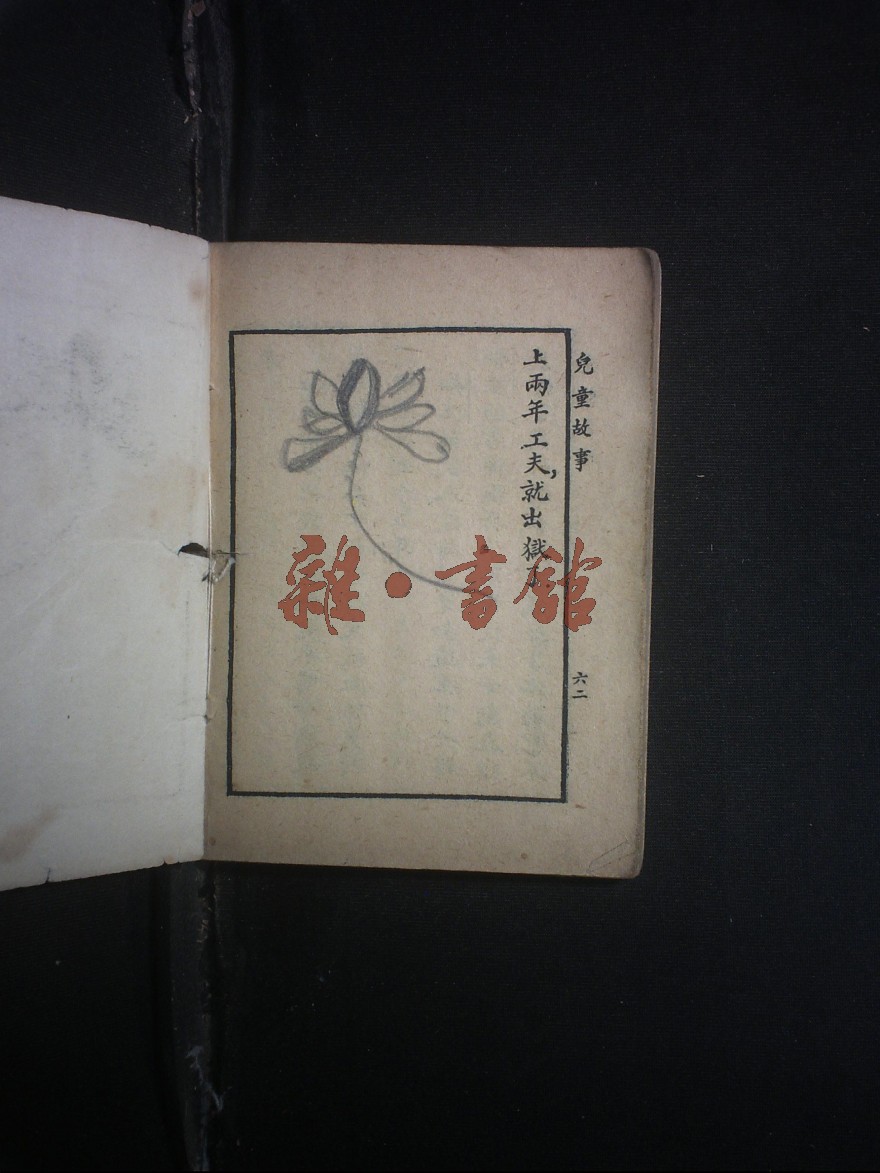 兒童故事
上兩年工夫,就出獄了
六二
雜·書館